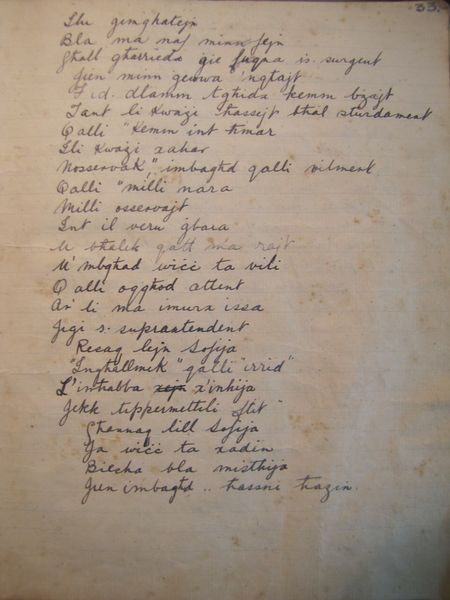 33.
Lhu gimghatejn
Bla ma naf minn fejn
Ghall gharrieda gie fuqna is. surgent
Jien minn gewwa 'ngtajt
Fid. dlamm tghidx kemm bzajt
Tant li kwazi hassejt bhal sturdament
Qalli "Kemm int hmar
Sti kwazi xahar
Nosservak", imbaghd qalli vilment.
Qalli "milli nara
Milli osservajt
Int il veru gbara
U bhalek qatt ma rajt
U 'mbghad wicc ta vili
Qalli oqghod attent
Ar' li ma imurx issa
Jigi s. supraetendent
Resaq lejn Sofija
"Inghallmik" qalli "irrid"
L'imhabba x'inhija
Jekk tippermettili ftit"
Ghannaq lill Sofija
Ja wicc ta xadin
Biesha bla misthija
Jien imbaghd .. hassni hazin.